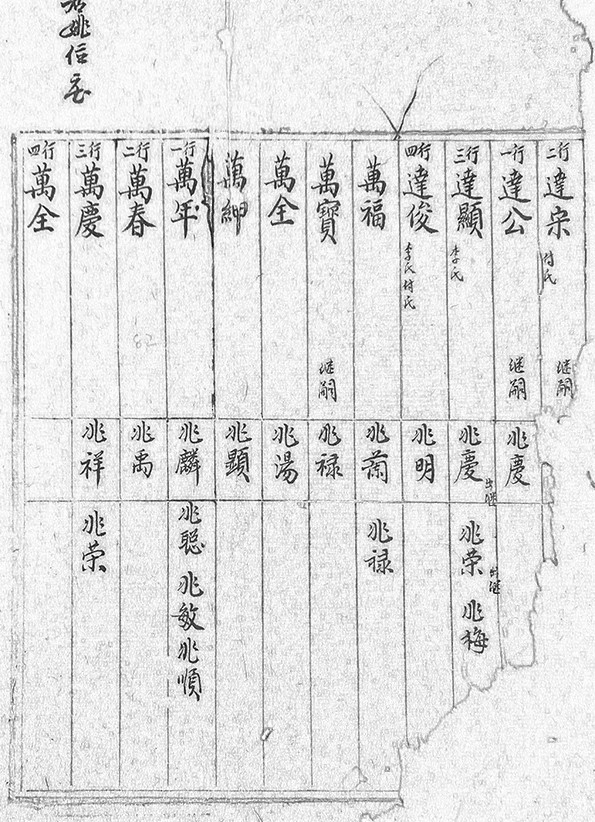 姚信
二行達宗 付氏 继嗣
一行達公 继嗣 兆慶
三行達顯 李氏 兆慶 出继 兆荣 出继 兆梅
四行達俊 李氏 付氏 兆明
萬福 兆蘭 兆禄
萬寶 继嗣 兆禄
萬全 兆湯
萬紳 兆顕
一行萬年 兆麟 兆聪 兆敏 兆順
二行萬春 兆禹
三行萬慶 兆祥 兆荣
四行萬全